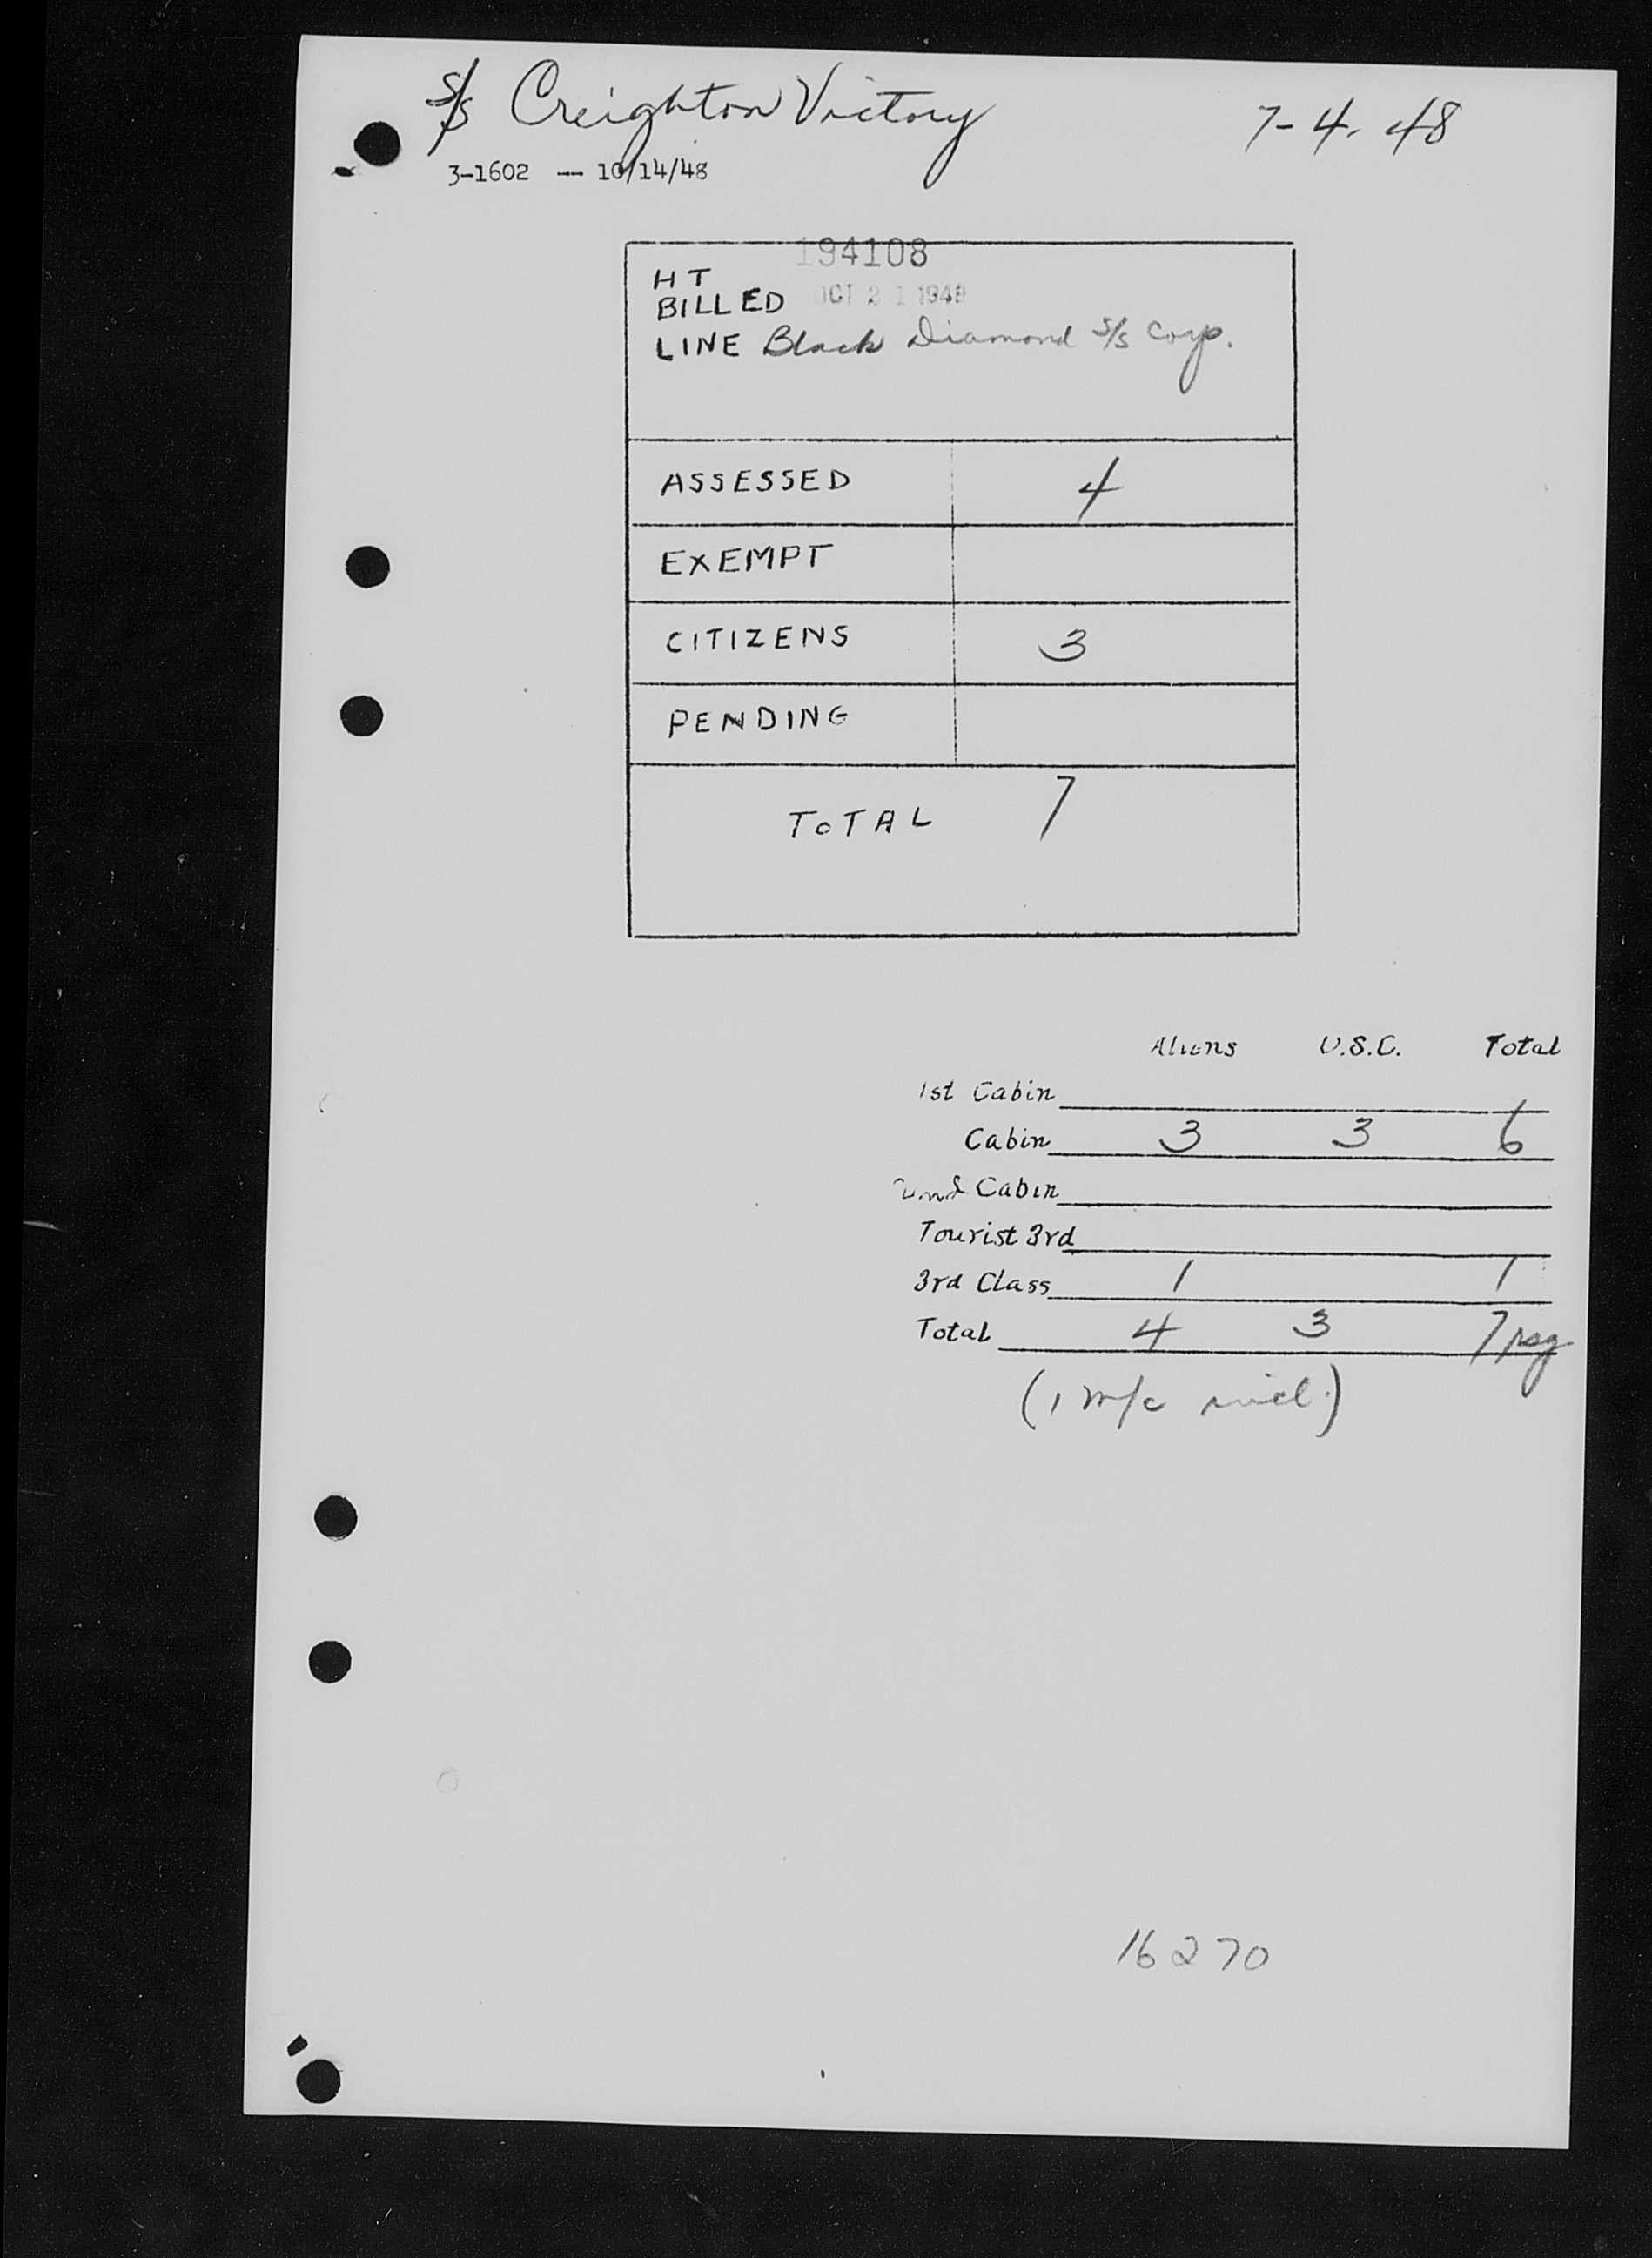 S/S Creighton Victory 7-4-48
3-1602 -- 10/14/48
194108
HT
BILLED OCT 21 1948
LINE Black Diamond S/S Corp.
ASSESSED 4
EXEMPT
CITIZENS 3
PENDING
TOTAL 7
Aliens U.S.C. Total
1st Cabin
Cabin 3 3 6
2nd Cabin
Tourist 3rd
3rd Class 1 1
Total 4 3 7 psg
(1 m/c incl.)
16270